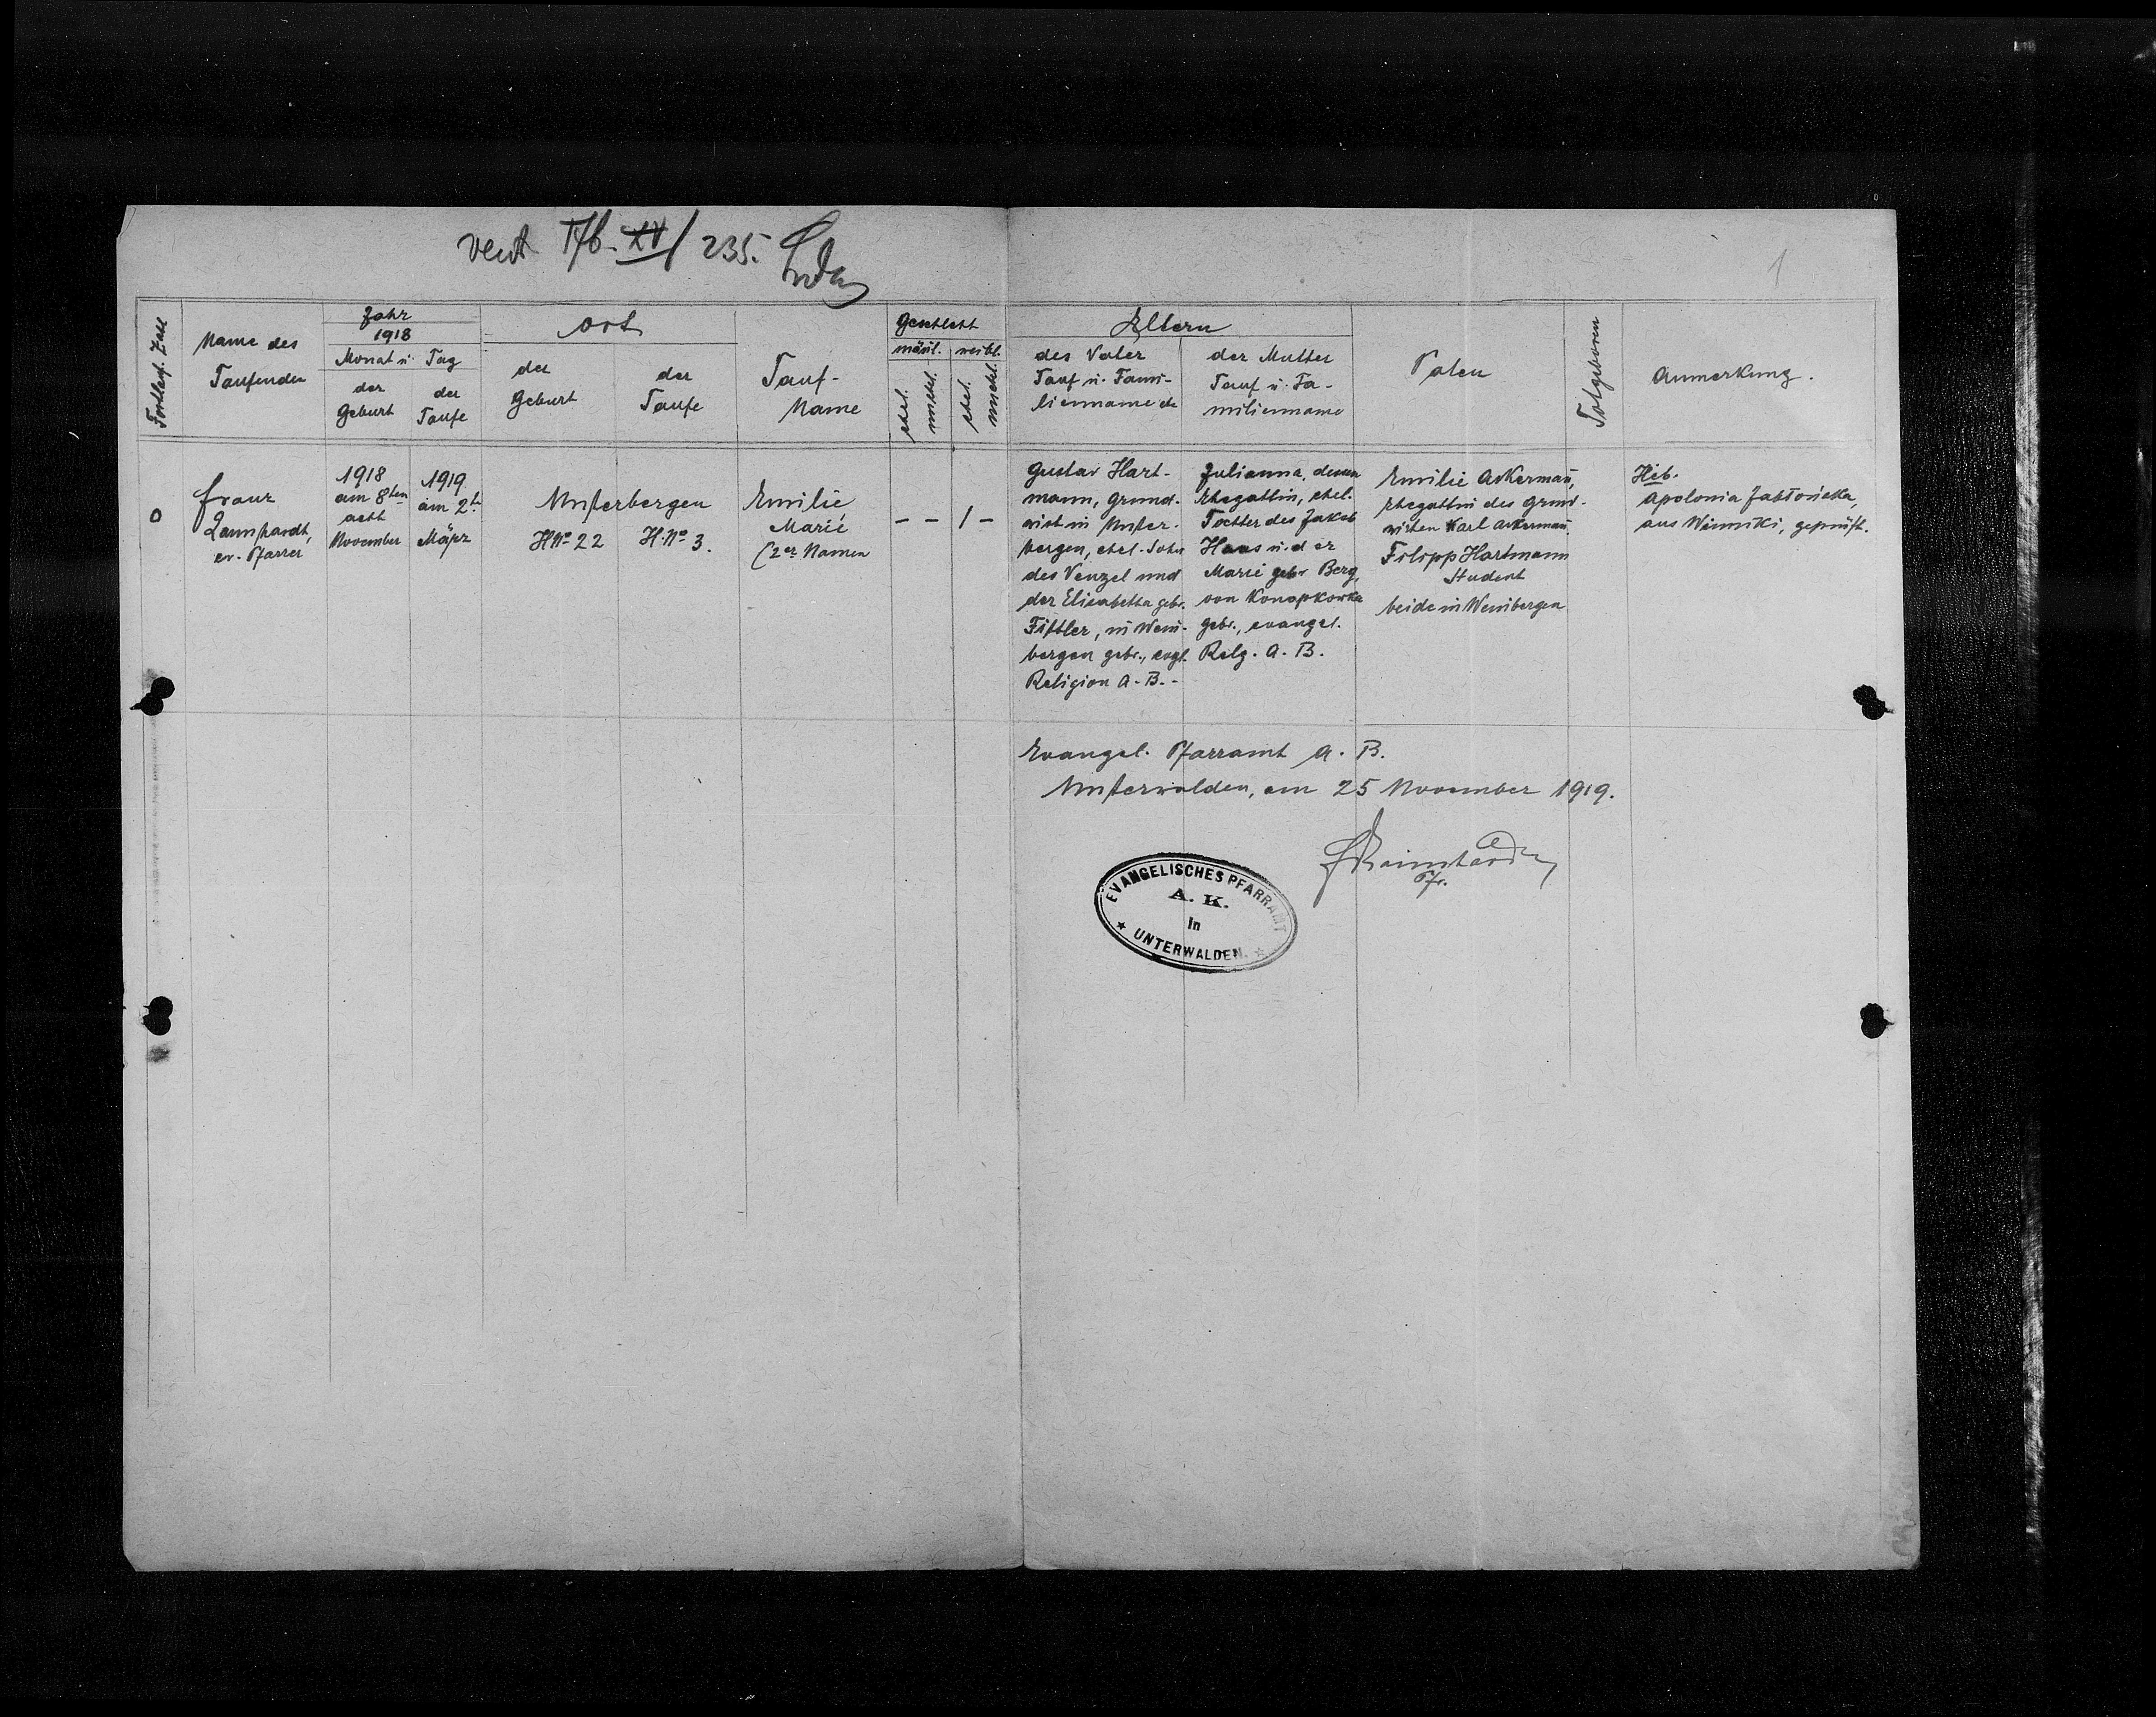 vert Tfb. XV/235.
1
Fortlauf. Zahl
Name des
Taufenden
Jahr
1918
Monat u. Tag
der
Geburt
der
Taufe
Ort
der
Geburt
der
Taufe
Tauf-
Name
Geschlecht
mänl. weibl.
ehel.
unehel.
ehel.
unehel.
Eltern
des Vater
Tauf u. Fami-
lienname
der Mutter
Tauf u. Fa-
milienname
Paten
Totgeboren
Anmerkung.
0
Franz
Laumhardt,
ev. Pfarrer
1918
am 8ten
acht
November
1919
am 2t.
März
Unterbergen
HNo 22
H.No 3.
Emilie
Marie
(2er Namen
– – 1 –
Gustav Hart-
mann, Grund-
wirt in Unter-
bergen, ehel. Sohn
des Venzel und
der Elisabetha geb.
Fittler, in Wein-
bergen geb., evgl.
Religion A. B. -
Julianna, dessen
Ehegattin, ehel.
Tochter des Jakob
Haas u. der
Marie geb. Berg,
von Konopkowka
geb., evangel.
Relg. A. B.
Emilie Ackermañ,
Ehegattin des Grund-
wirten Karl Ackermañ.
Filipp Hartmann
Student
beide in Weinbergen
Heb.
Apolonia Jabłońska,
aus Winniki, geprüft.
Evangel. Pfarramt A. B.
Unterwalden, am 25 November 1919.
Pfr.
EVANGELISCHES PFARRAMT
A. K.
in
* UNTERWALDEN. *